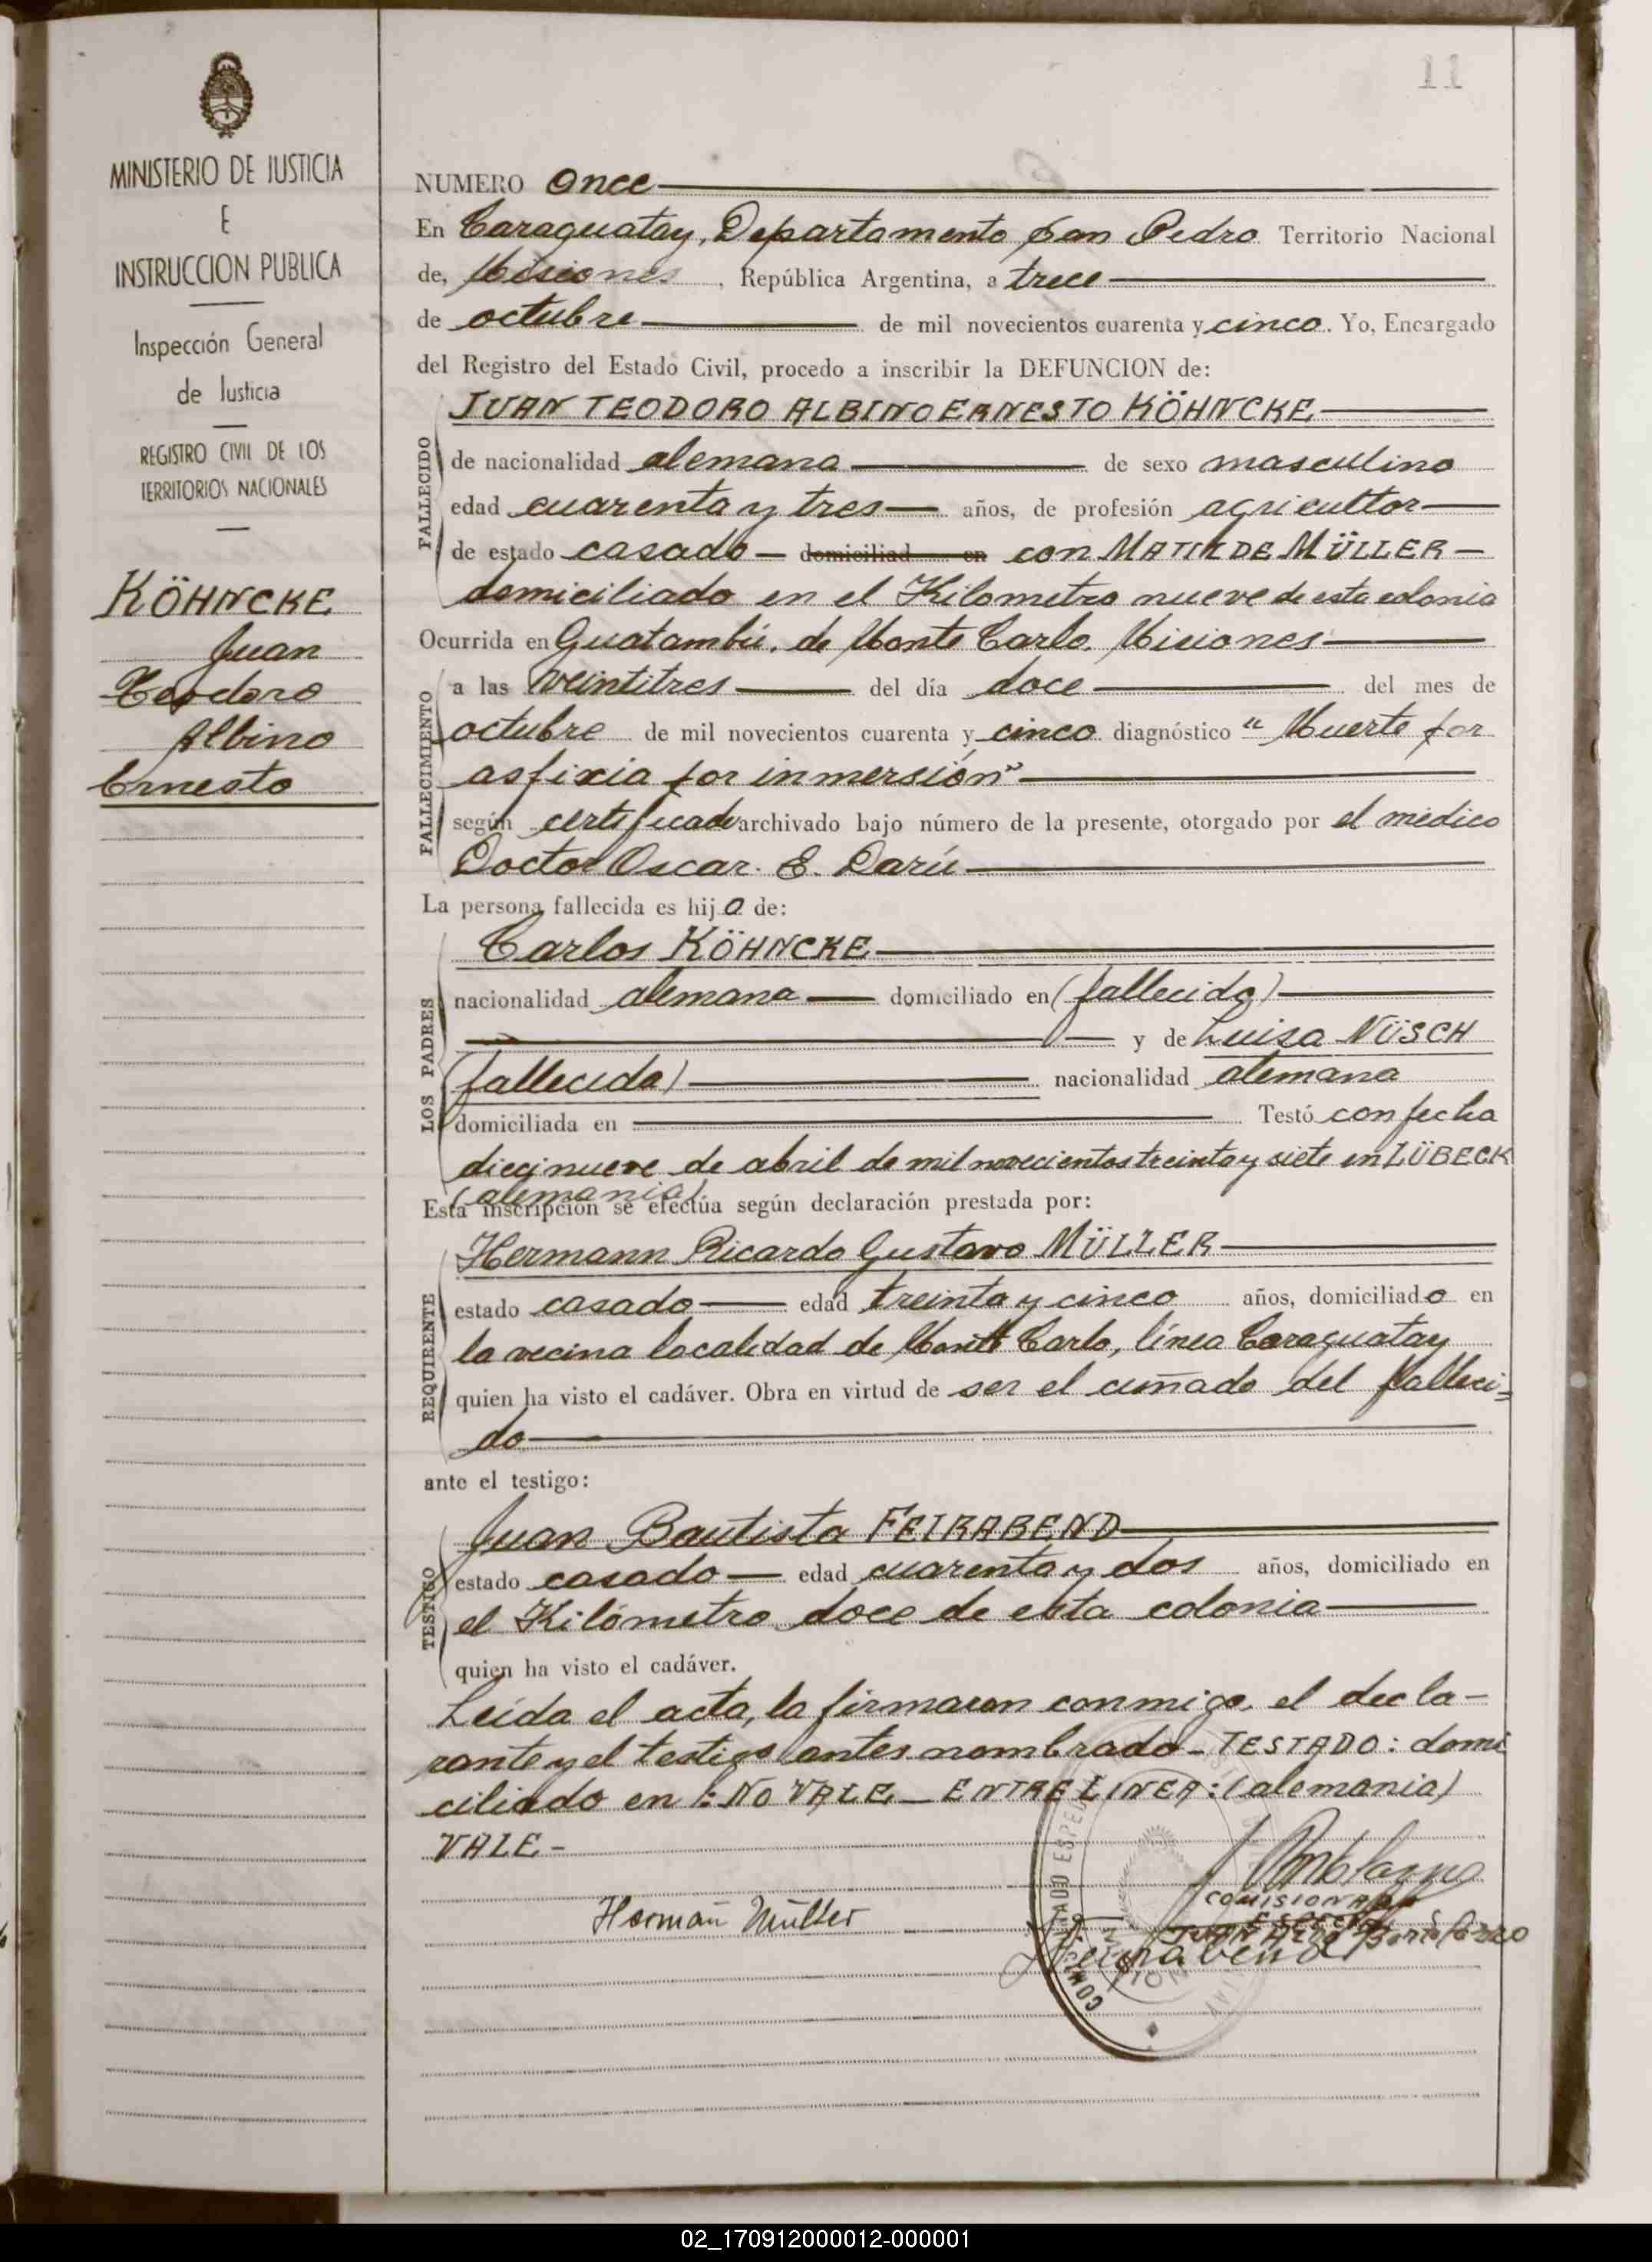 11
MINISTERIO DE JUSTICIA
E
INSTRUCCION PUBLICA
Inspección General
de Justicia
REGISTRO CIVIL DE LOS
TERRITORIOS NACIONALES
KÖHNCKE
Juan
Teodoro
Albino
Ernesto
NUMERO Once
En Caraguatay, Departamento San Pedro Territorio Nacional
de, Misiones, República Argentina, a trece
de octubre de mil novecientos cuarenta y cinco. Yo, Encargado
del Registro del Estado Civil, procedo a inscribir la DEFUNCION de:
JUAN TEODORO ALBINO ERNESTO KÖHNCKE
FALLECIDO
de nacionalidad alemana de sexo masculino
edad cuarenta y tres años, de profesión agricultor
de estado casado domiciliad en con MATILDE MÜLLER
domiciliado en el Kilometro nueve de esta colonia
Ocurrida en Guatambú, de Monte Carlo, Misiones
FALLECIMIENTO
a las veintitres del día doce del mes de
octubre de mil novecientos cuarenta y cinco diagnóstico "Muerte por
asfixia por inmersión"
según certificado archivado bajo número de la presente, otorgado por el médico
Doctor Oscar. E. Darú
La persona fallecida es hijo de:
Carlos KÖHNCKE
LOS PADRES
nacionalidad alemana domiciliado en (fallecido)
y de Luisa NÜSCH
(fallecida) nacionalidad alemana
domiciliada en Testó con fecha
diecinueve de abril de mil novecientos treinta y siete en LÜBECK
(alemania)
Esta inscripción se efectúa según declaración prestada por:
Hermann Ricardo Gustavo MÜLLER
REQUIRENTE
estado casado edad treinta y cinco años, domiciliado en
la vecina localidad de Monte Carlo, línea Caraguatay
quien ha visto el cadáver. Obra en virtud de ser el cuñado del falleci=
do
ante el testigo:
Juan Bautista FEIRABEND
TESTIGO
estado casado edad cuarenta y dos años, domiciliado en
el Kilómetro doce de esta colonia
quien ha visto el cadáver.
Leída el acta, la firmaron conmigo, el decla-
rante y el testigo antes nombrado - TESTADO: domi
ciliado en : NO VALE - ENTRE LINEA: (alemania)
VALE -
COMISIONADO
Hermañ Müller
02_170912000012-000001